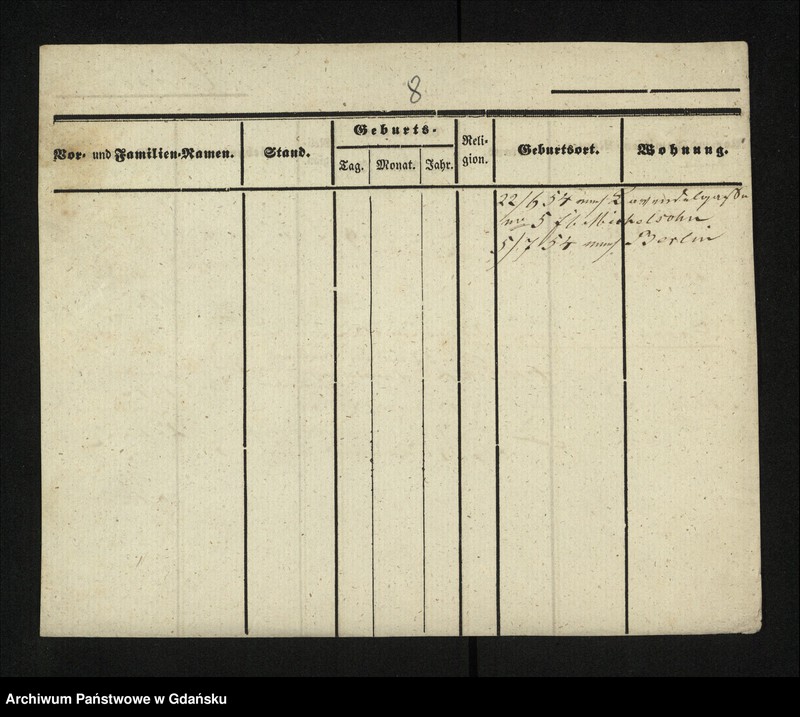 8
Vor- und Familien-Namen.
Stand.
Geburts-
Tag.
Monat.
Jahr.
Reli-
gion.
Geburtsort.
Wohnung.
22/6 54 nach Lavendelgasse
no 5 f b. Michelsohn
5/7 54 nach Berlin
Archiwum Państwowe w Gdańsku